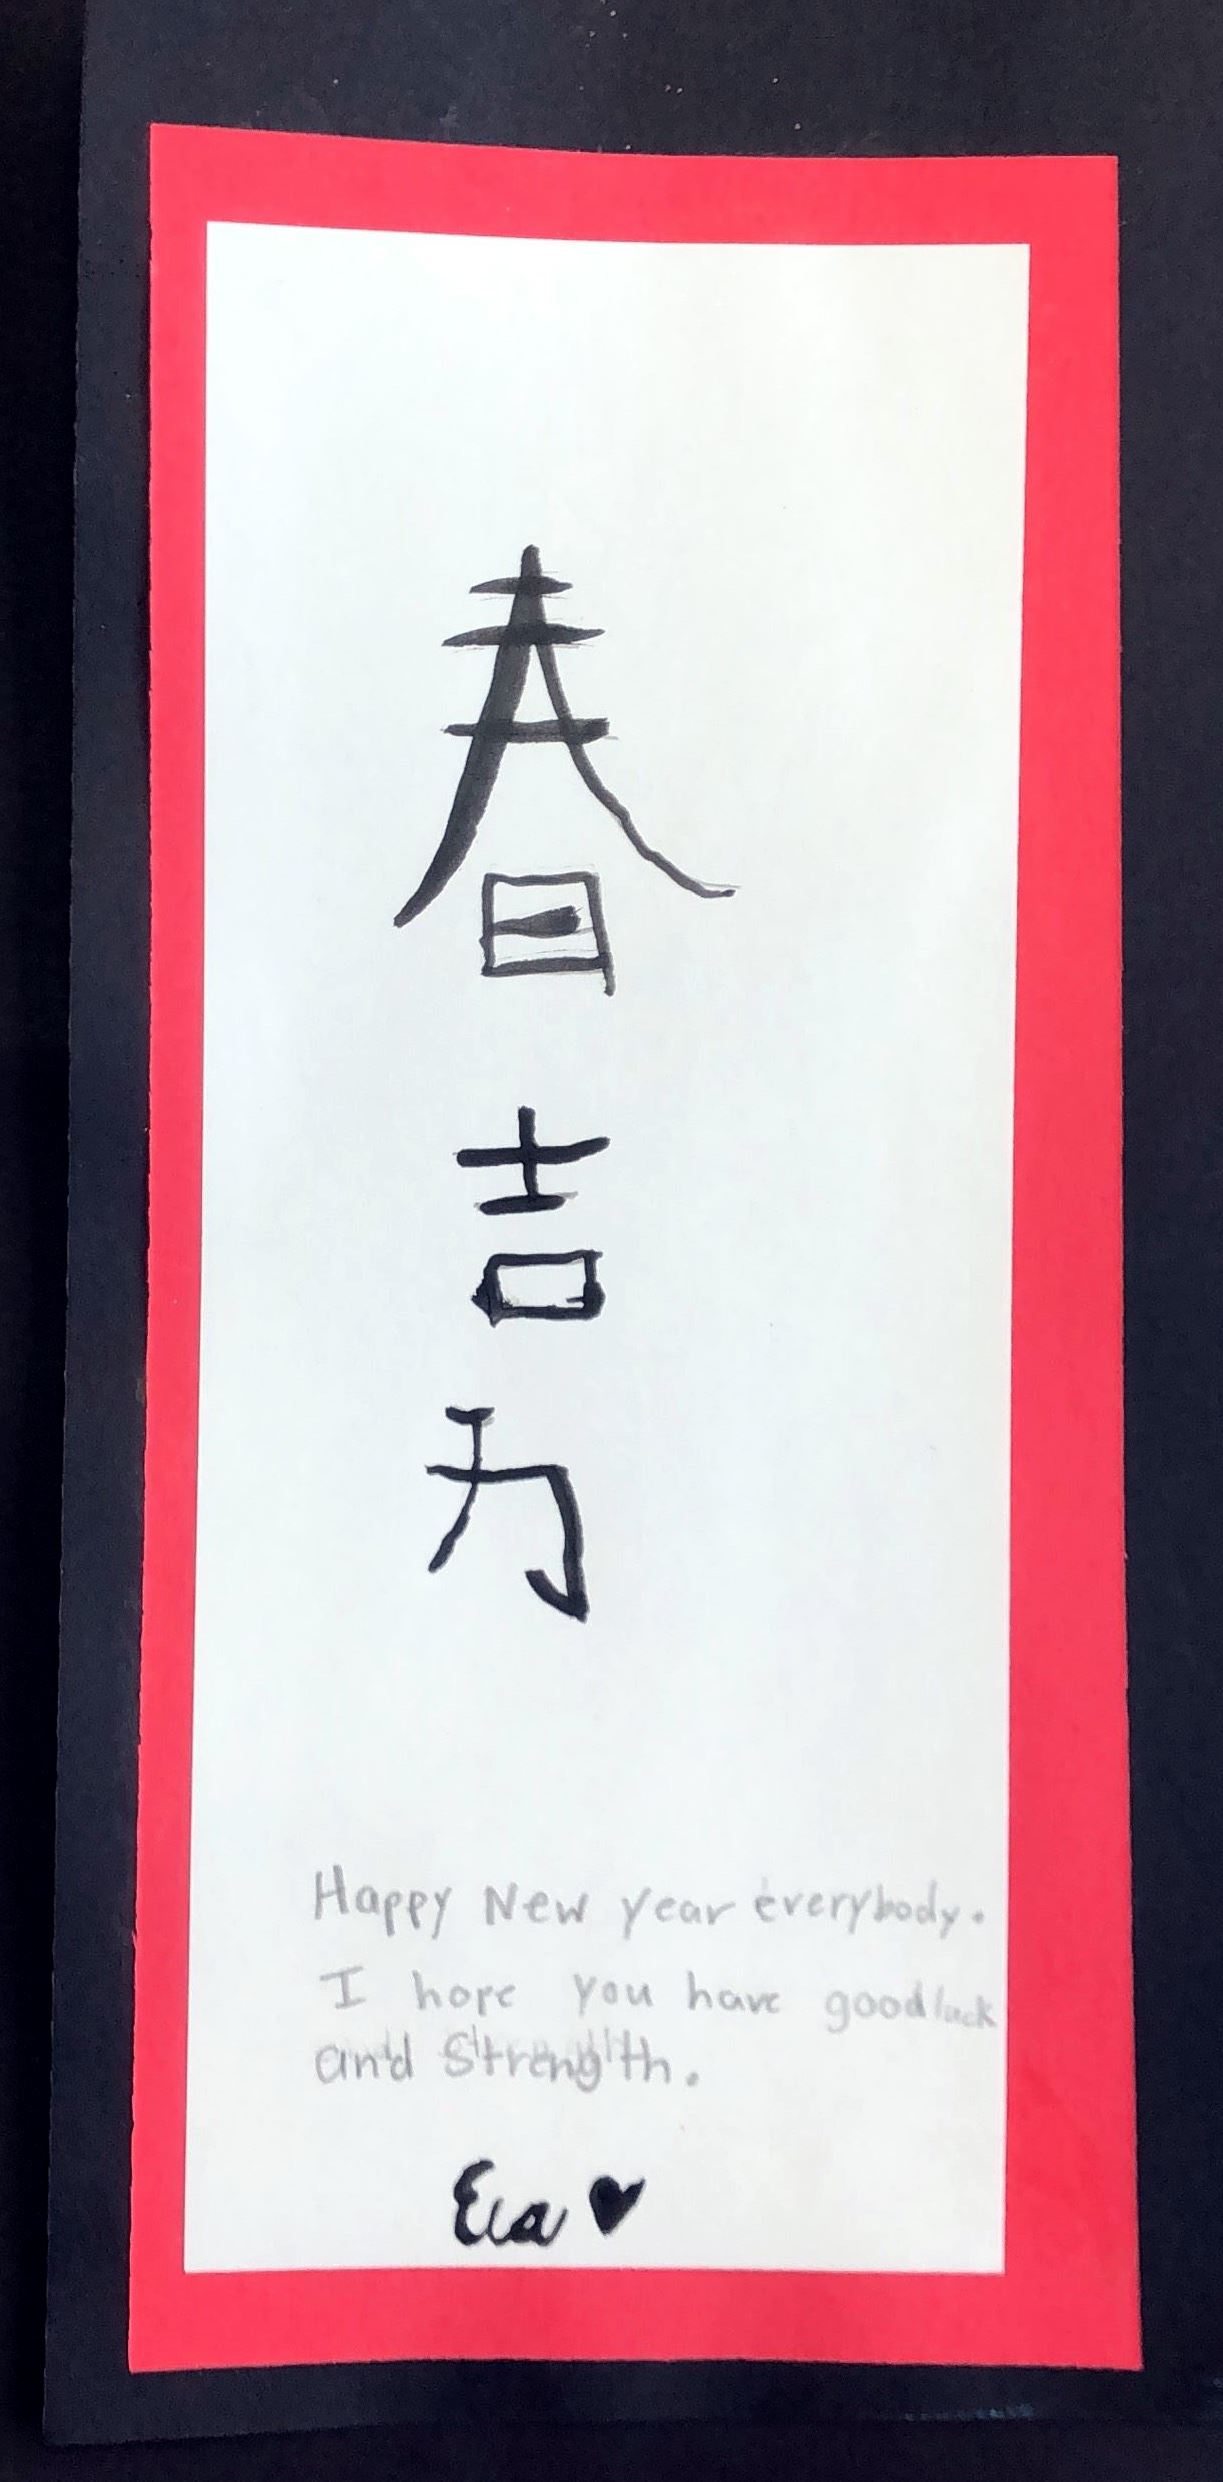 春
吉
力
Happy New year everybody.
I hope you have good luck
and Strength.